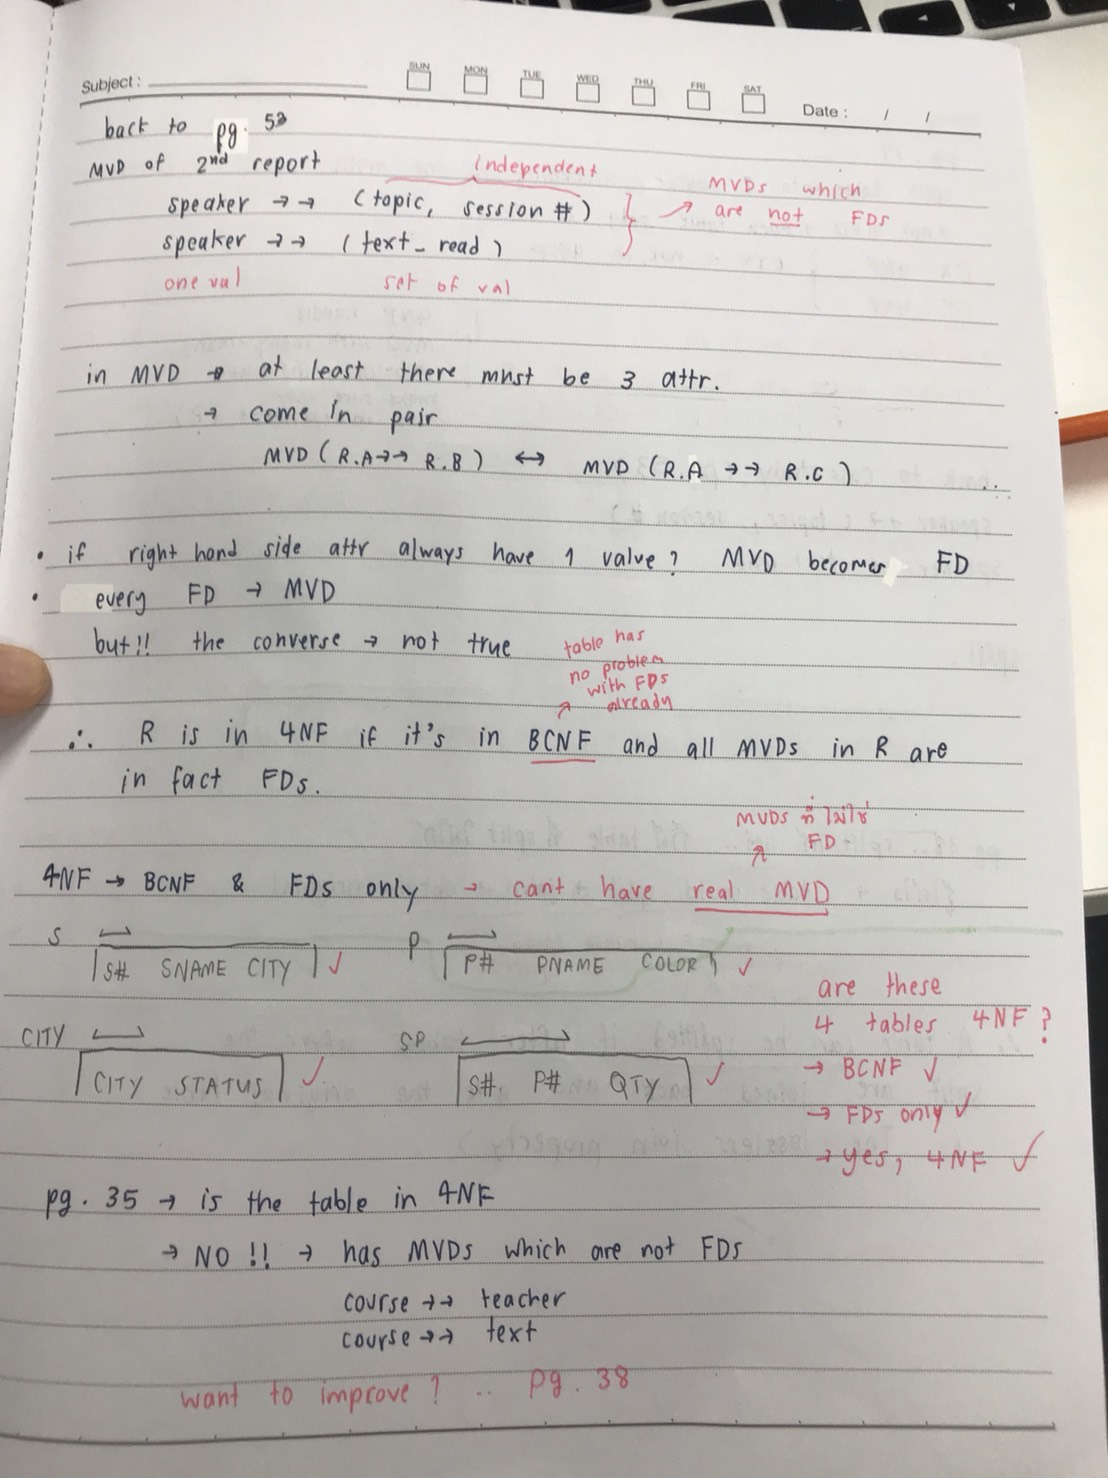 Subject :
SUN MON TUE WED THU FRI SAT
Date : / /
back to pg. 53
MVD of 2nd report
independent
speaker →→ (topic, session #)
speaker →→ (text_read)
MVDs which
are not FDs
one val set of val
in MVD → at least there must be 3 attr.
→ come in pair
MVD (R.A →→ R.B) ↔ MVD (R.A →→ R.C)
• if right hand side attr always have 1 value? MVD becomes FD
• every FD → MVD
but!! the converse → not true
table has
no problem
with FDs
already
∴ R is in 4NF if it's in BCNF and all MVDs in R are
in fact FDs.
MVDs ที่ ไม่ใช่
FD
4NF → BCNF & FDs only → cant have real MVD
S
S# SNAME CITY ✓
P
P# PNAME COLOR ✓
CITY
CITY STATUS ✓
SP
S# P# QTY ✓
are these
4 tables 4NF ?
→ BCNF ✓
→ FDs only ✓
→ yes, 4NF ✓
pg. 35 → is the table in 4NF
→ NO !! → has MVDs which are not FDs
course →→ teacher
course →→ text
want to improve ? .. pg. 38